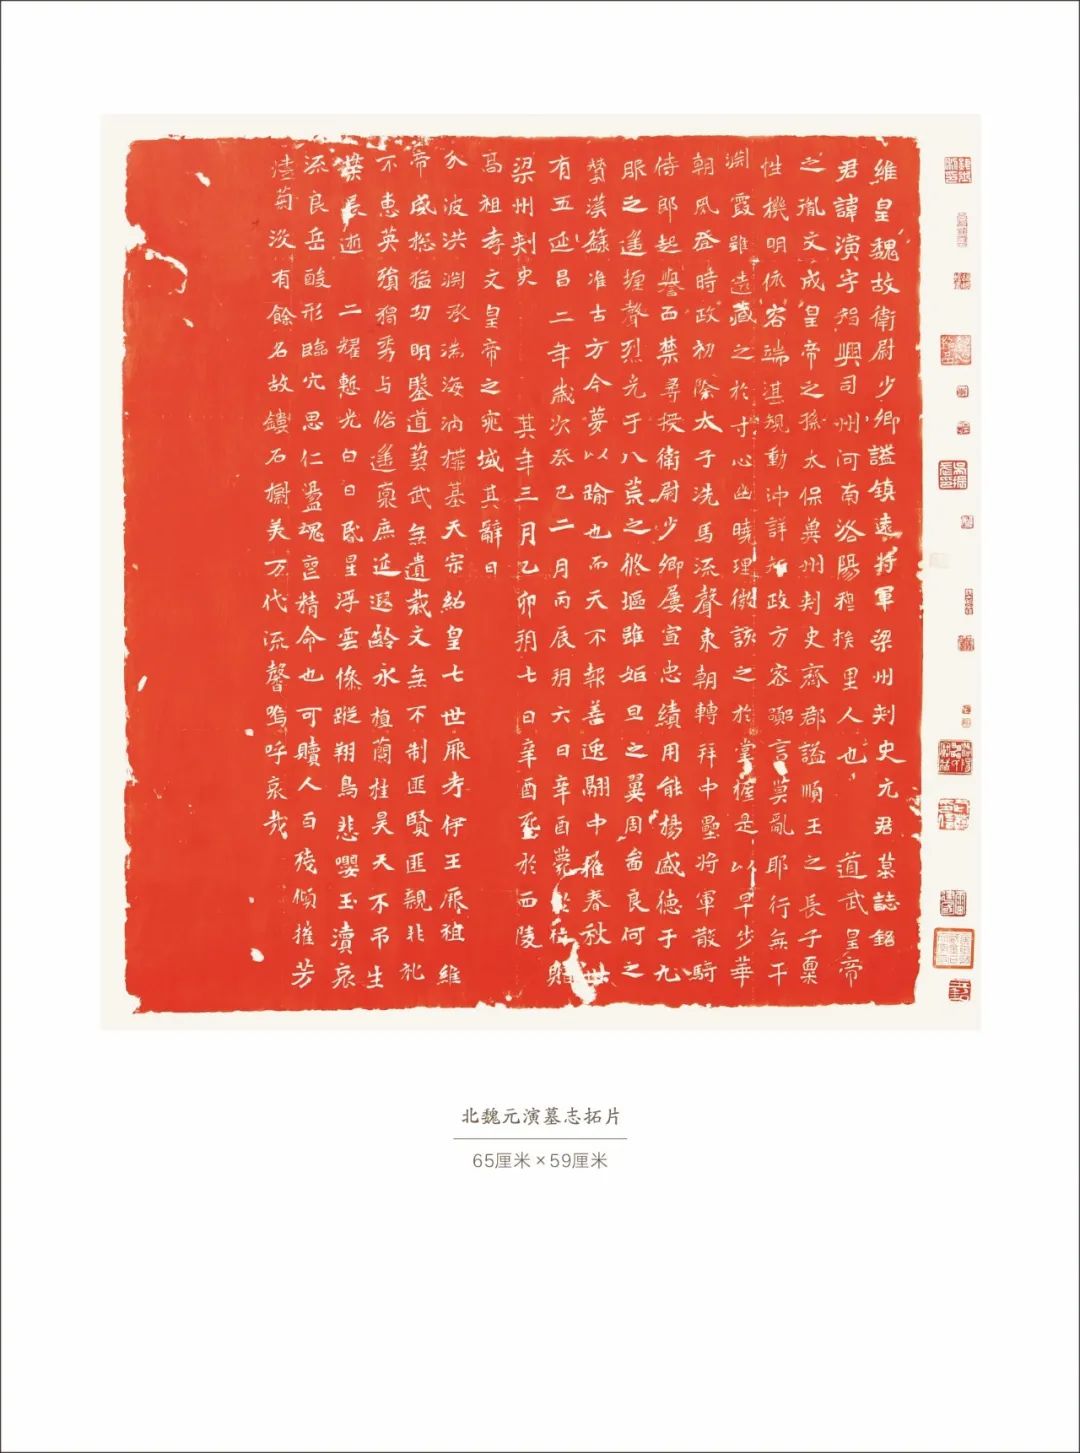 維皇魏故衛尉少卿謚鎮遠將軍梁州刾史元君墓誌銘
君諱演字智興司州河南洛陽穆族里人也 道武皇帝
之胤文成皇帝之孫太保冀州刾史齊郡謚順王之長子稟
性機明依容端湛規動沖詳知政方容嘿言莫亂耶行無干
淵霞雖遠藏之於寸心幽曉理微該之於掌握是以早步華
朝夙登時政初除太子洗馬流聲東朝轉拜中壘將軍散騎
侍郎起譽西禁尋授衛尉少卿屢宣忠績用能揚盛德于九
服之遙壃聲烈光于八荒之脩塸雖姬旦之翼周啚良何之
贊漢籙准古方今蔑以踰也而天不報善逸翮中摧春秋卅
有五延昌二年歲次癸巳二月丙辰朔六日辛酉薨於位贈
梁州刾史 其年三月乙卯朔七日辛酉窆於西陵
高祖孝文皇帝之兆域其辭曰
分波洪淵承湍海汭基天宗紹皇七世厥考伊王厥祖維
帝咸摠猛功明鑒道藝武無遺裁文無不制匪賢匪親非礼
不惠英獨秀与俗遙稟庶延遐齡永植蘭桂昊天不吊生
榮長逝 二耀慙光白日昏星浮雲儵蹤翔鳥悲嚶玉瀆哀
流良岳酸形臨穴思仁盪魂喪精命也可贖人百殘傾摧芳
菊沒有餘名故鏤石美万代流馨嗚呼哀哉
北魏元演墓志拓片
65厘米×59厘米